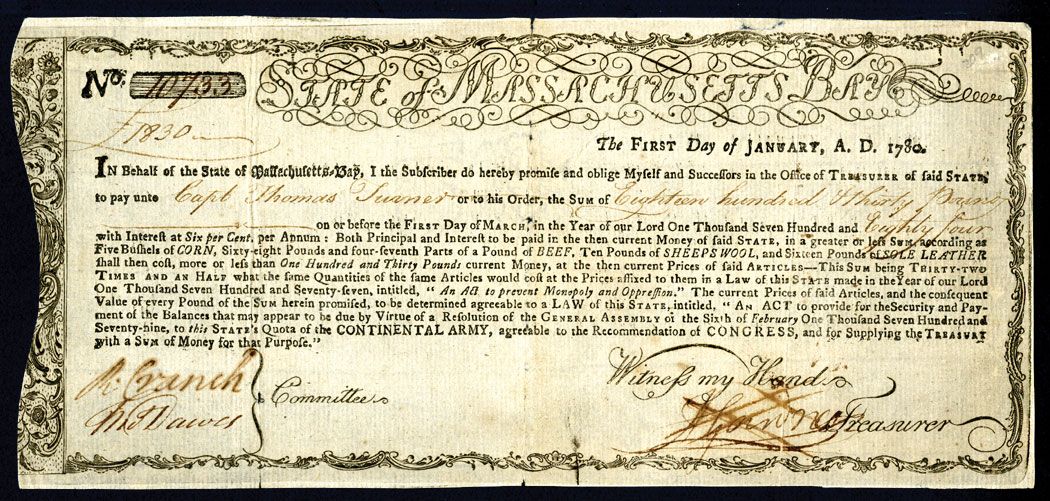 No. 10733
STATE of MASSACHUSETTS BAY
£1830
The FIRST Day of JANUARY, A. D. 1780.
IN Behalf of the State of Massachusetts-Bay, I the Subscriber do hereby promise and oblige Myself and Successors in the Office of TREASURER of said STATE,
to pay unto Capt Thomas Turner or to his Order, the SUM of Eighteen hundred & thirty Pounds
on or before the FIRST Day of MARCH, in the Year of our Lord One Thousand Seven Hundred and Eighty four
with Interest at Six per Cent. per Annum: Both Principal and Interest to be paid in the then current Money of said STATE, in a greater or less SUM, according as
Five Bushels of CORN, Sixty-eight Pounds and four-seventh Parts of a Pound of BEEF, Ten Pounds of SHEEPS WOOL, and Sixteen Pounds of SOLE LEATHER
shall then cost, more or less than One Hundred and Thirty Pounds current Money, at the then current Prices of said ARTICLES—This SUM being THIRTY-TWO
TIMES AND AN HALF what the same Quantities of the same Articles would cost at the Prices affixed to them in a Law of this STATE made in the Year of our Lord
One Thousand Seven Hundred and Seventy-seven, intitled, "An Act to prevent Monopoly and Oppression." The current Prices of said Articles, and the consequent
Value of every Pound of the SUM herein promised, to be determined agreeable to a LAW of this STATE, intitled, "An ACT to provide for the Security and Pay-
ment of the Balances that may appear to be due by Virtue of a Resolution of the GENERAL ASSEMBLY of the Sixth of February One Thousand Seven Hundred and
Seventy-nine, to this STATE's Quota of the CONTINENTAL ARMY, agreeable to the Recommendation of CONGRESS, and for Supplying the TREASURY
with a SUM of Money for that Purpose."
R. Cranch
Thos Dawes
Committee
Witness my Hand
Treasurer